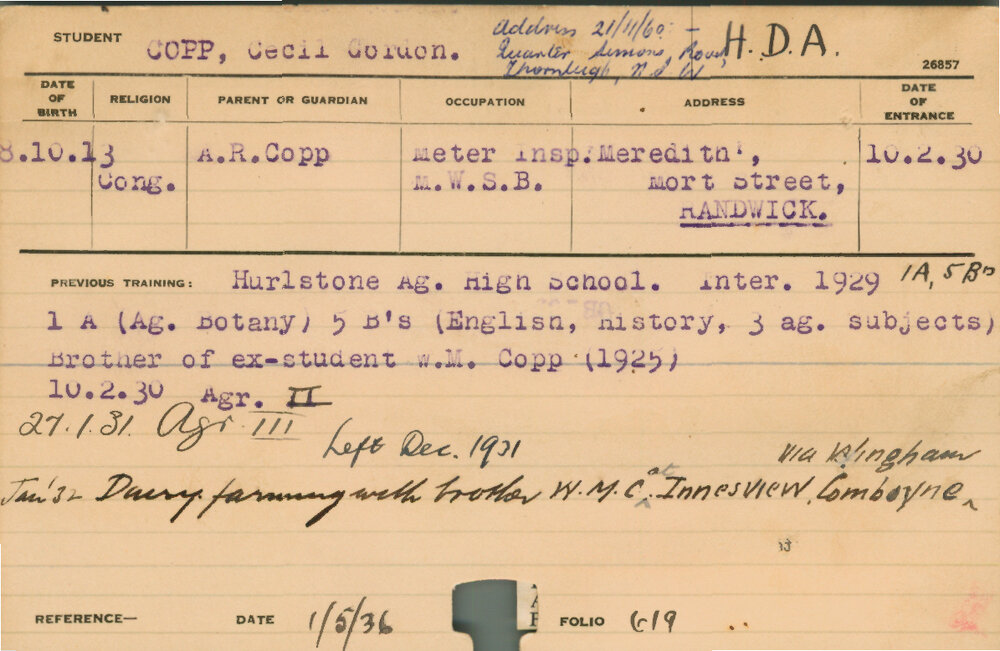 STUDENT COPP, Cecil Gordon. Address 21/11/60: - H.D.A.
Quarter Sessions Road,
Thornleigh, N.S.W
26857
DATE OF BIRTH RELIGION PARENT OR GUARDIAN OCCUPATION ADDRESS DATE OF ENTRANCE
8.10.13 A.R.Copp Meter Insp. 'Meredith', 10.2.30
Cong. M.W.S.B. Mort Street,
RANDWICK.
PREVIOUS TRAINING: Hurlstone Ag. High School. Inter. 1929 1A, 5Bs
1 A (Ag. Botany) 5 B's (English, History, 3 ag. subjects)
Brother of ex-student W.M. Copp (1925)
10.2.30 Agr. II
27.1.31. Agr. III
Left Dec. 1931
via Wingham
Jan '32 Dairy farming with brother W.M.C. at Innesview, Comboyne
REFERENCE— DATE 1/5/36 FOLIO G19